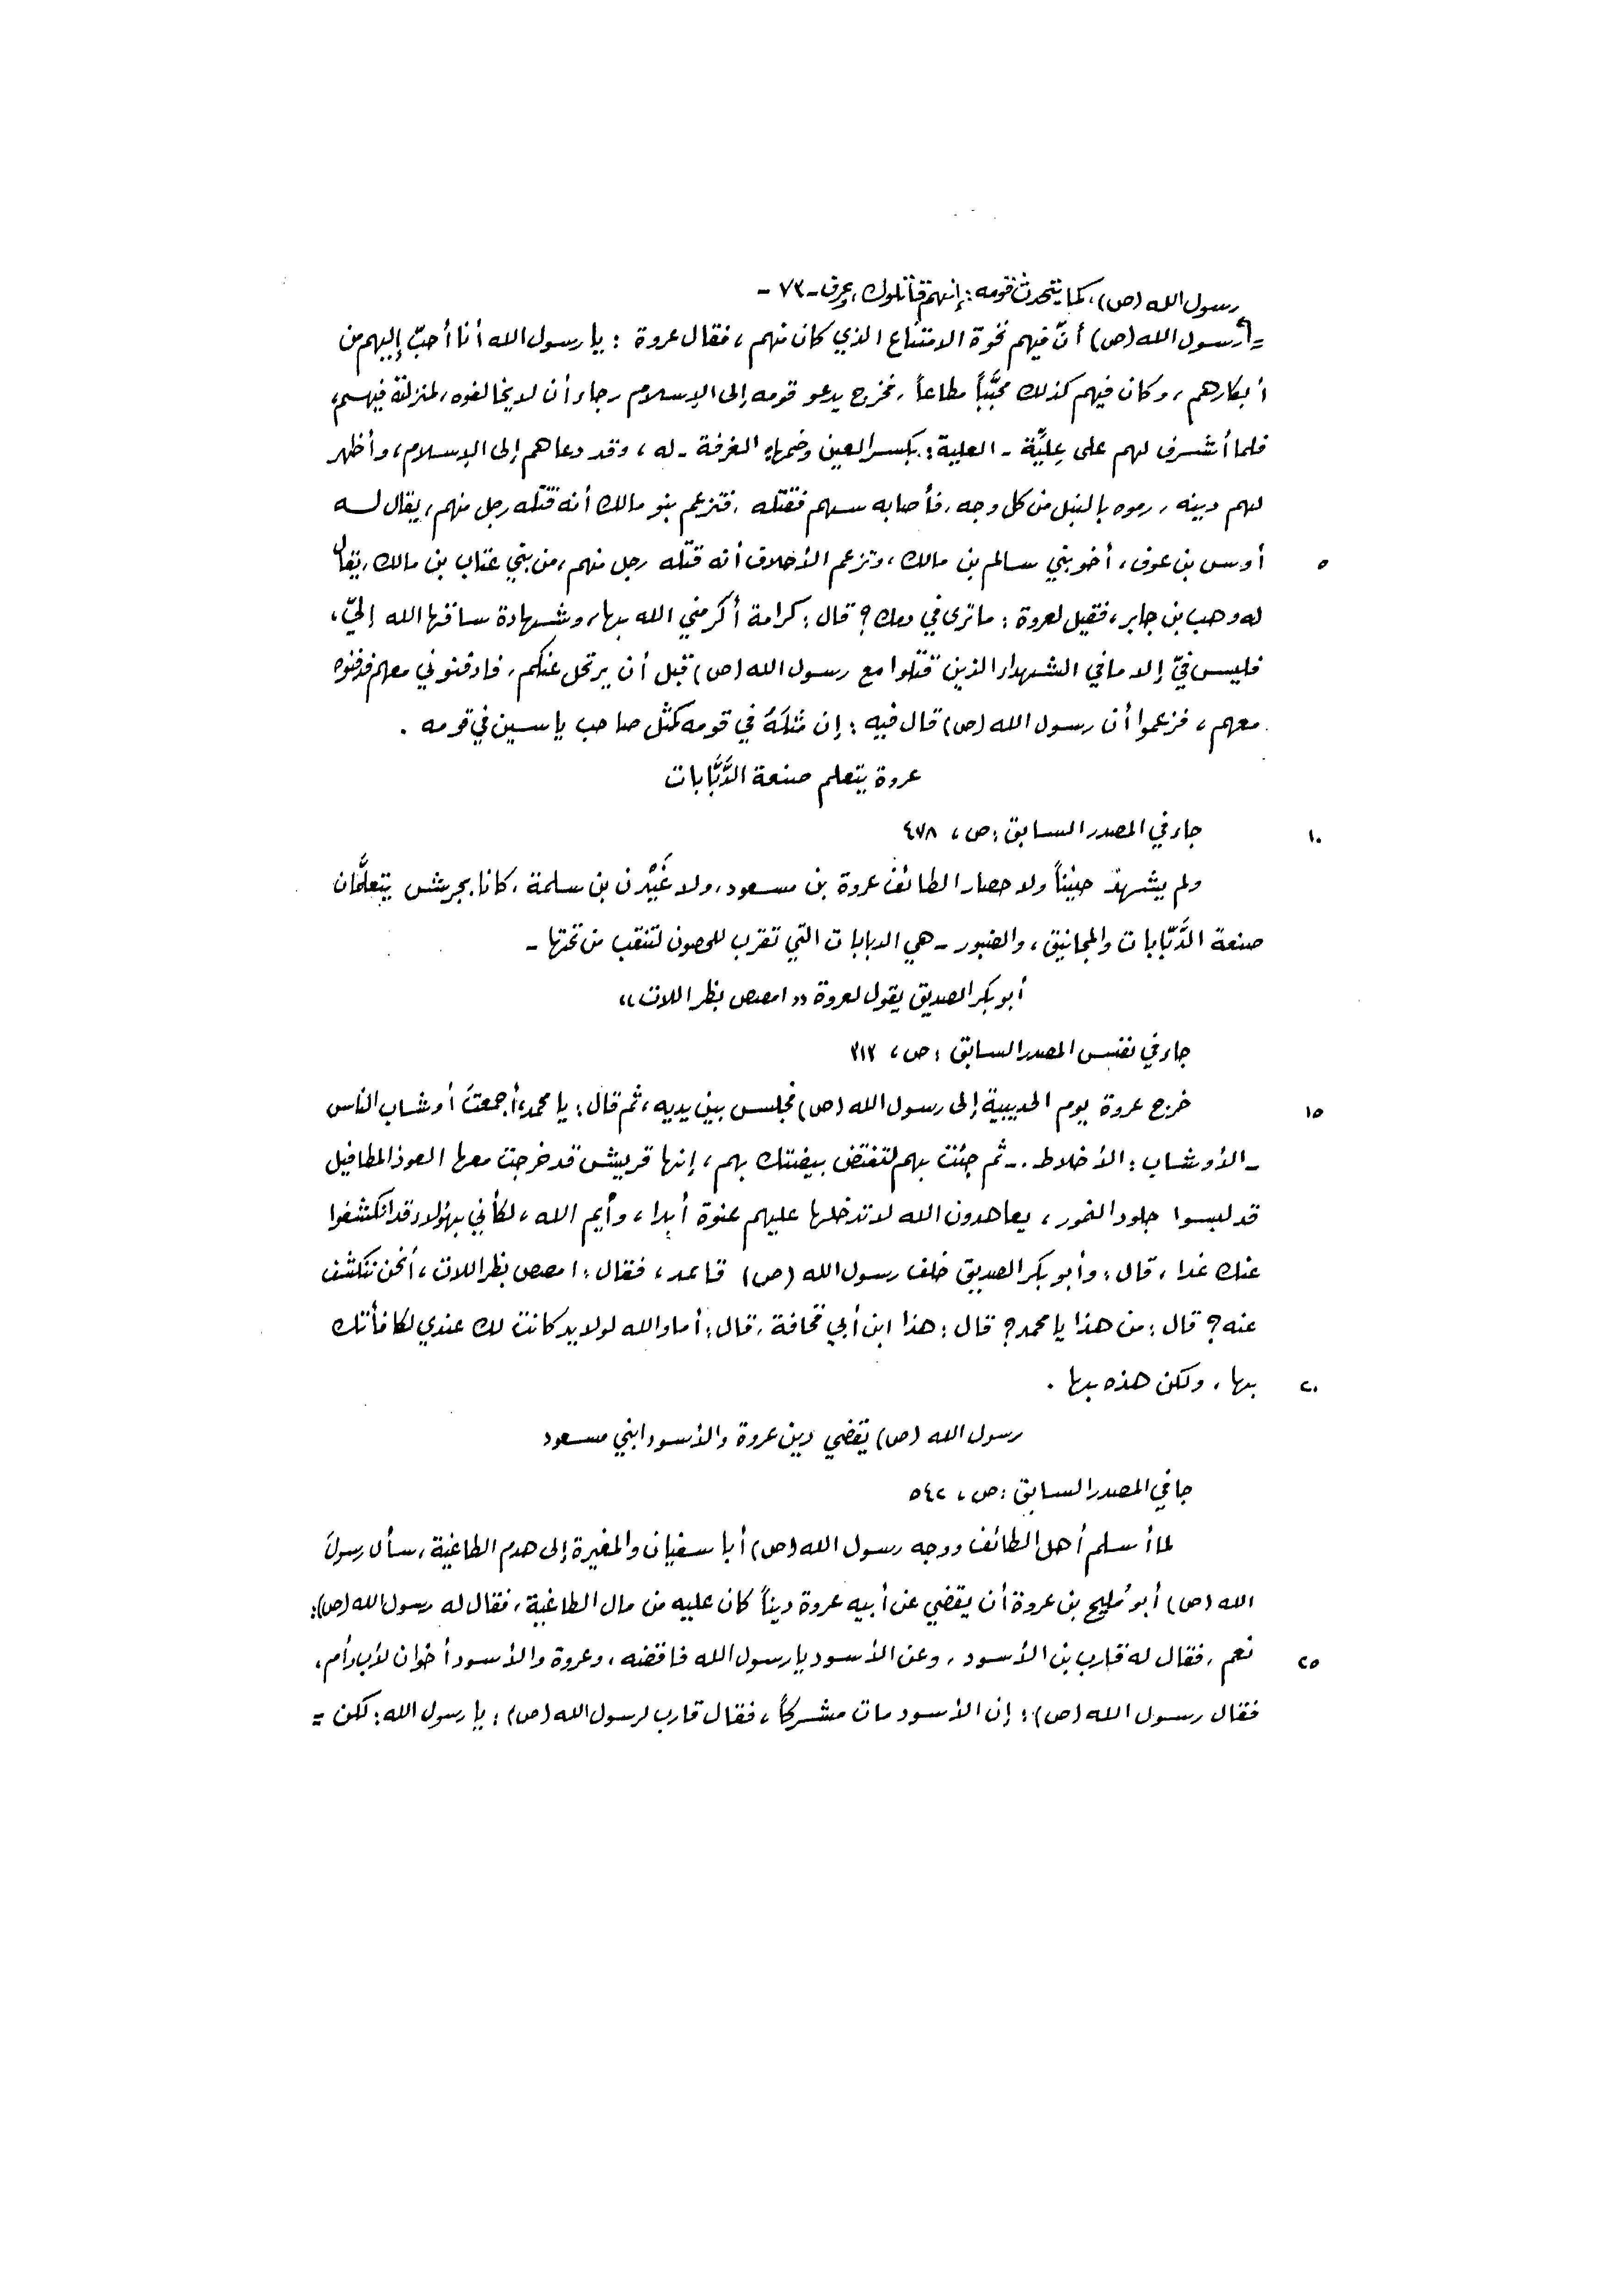 رسول الله (ص)، كما يتحدث قومه: إنهم قاتلوك، وعرف - ٧٣ -
= رسول الله (ص) أنّ فيهم نخوة الامتناع الذي كان منهم، فقال عروة : يا رسول الله أنا أحبّ إليهم من
أبكارهم، وكان فيهم كذلك محبَّباً مطاعاً، فخرج يدعو قومه إلى الإسلام رجاء أن لا يخالفوه، لمنزلته فيهم،
فلما أشرف لهم على عِليَّة - العلية: بكسر العين وضمها، الغرفة - له، وقد دعاهم إلى الإسلام، وأظهر
لهم دينه، رموه بالنبل من كل وجه، فأصابه سهم فقتله، فتزعم بنو مالك أنه قتله رجل منهم، يقال له
٥ أوس بن عوف، أخو بني سالم بن مالك، وتزعم الأحلاف أنه قتله رجل منهم، من بني عتاب بن مالك، يقال
له وهب بن جابر، فقيل لعروة : ما ترى في دمك ؟ قال : كرامة أكرمني الله بها، وشهادة ساقها الله إليّ،
فليس فيّ إلا ما في الشهداء الذين قتلوا مع رسول الله (ص) قبل أن يرتحل عنكم، فادفنوني معهم فدفنوه
معهم، فزعموا أن رسول الله (ص) قال فيه : إن مَثَلَهُ في قومه كمثل صاحب ياسين في قومه .
عروة يتعلم صنعة الدَّبَّابات
١٠ جاء في المصدر السابق : ص، ٤٧٨
ولم يشهد حنيناً ولا حصار الطائف عروة بن مسعود، ولا غَيْلان بن سلمة، كانا بجرش يتعلَّمان
صنعة الدَّبّابات والمجانيق، والضبور - هي الدبابات التي تقرب للحصون لتنقب من تحتها -
أبو بكر الصديق يقول لعروة (( امصص بظر اللات ))
جاء في نفس المصدر السابق : ص، ٣١٣
١٥ خرج عروة يوم الحديبية إلى رسول الله (ص) فجلس بين يديه، ثم قال : يا محمد، أجمعتَ أوشاب الناس
- الأوشاب : الأخلاط - ثم جئت بهم لتفتض بيضتك بهم، إنها قريش قد خرجت معها العوذ المطافيل
قد لبسوا جلود النمور، يعاهدون الله لا تدخلها عليهم عنوة أبدا، وأيم الله، لكأني بهؤلاء قد انكشفوا
عنك غدا، قال : وأبو بكر الصديق خلف رسول الله (ص) قاعد، فقال : امصص بظر اللات، أنحن ننكشف
عنه ؟ قال : من هذا يا محمد ؟ قال : هذا ابن أبي قحافة، قال : أما والله لولا يد كانت لك عندي لكافأتك
٢٠ بها، ولكن هذه بها .
رسول الله (ص) يقضي دين عروة والأسود ابني مسعود
جا في المصدر السابق : ص، ٥٤٢
لما أسلم أهل الطائف ووجه رسول الله (ص) أبا سفيان والمغيرة إلى هدم الطاغية، سأل رسولَ
الله (ص) أبو مُليح بن عروة أن يقضي عن أبيه عروة ديناً كان عليه من مال الطاغية، فقال له رسول الله (ص):
٢٥ نعم، فقال له قارب بن الأسود، وعن الأسود يا رسول الله فاقضه، وعروة والأسود أخوان لأب وأم،
فقال رسول الله (ص) : إن الأسود مات مشركاً، فقال قارب لرسول الله (ص) : يا رسول الله : لكن =